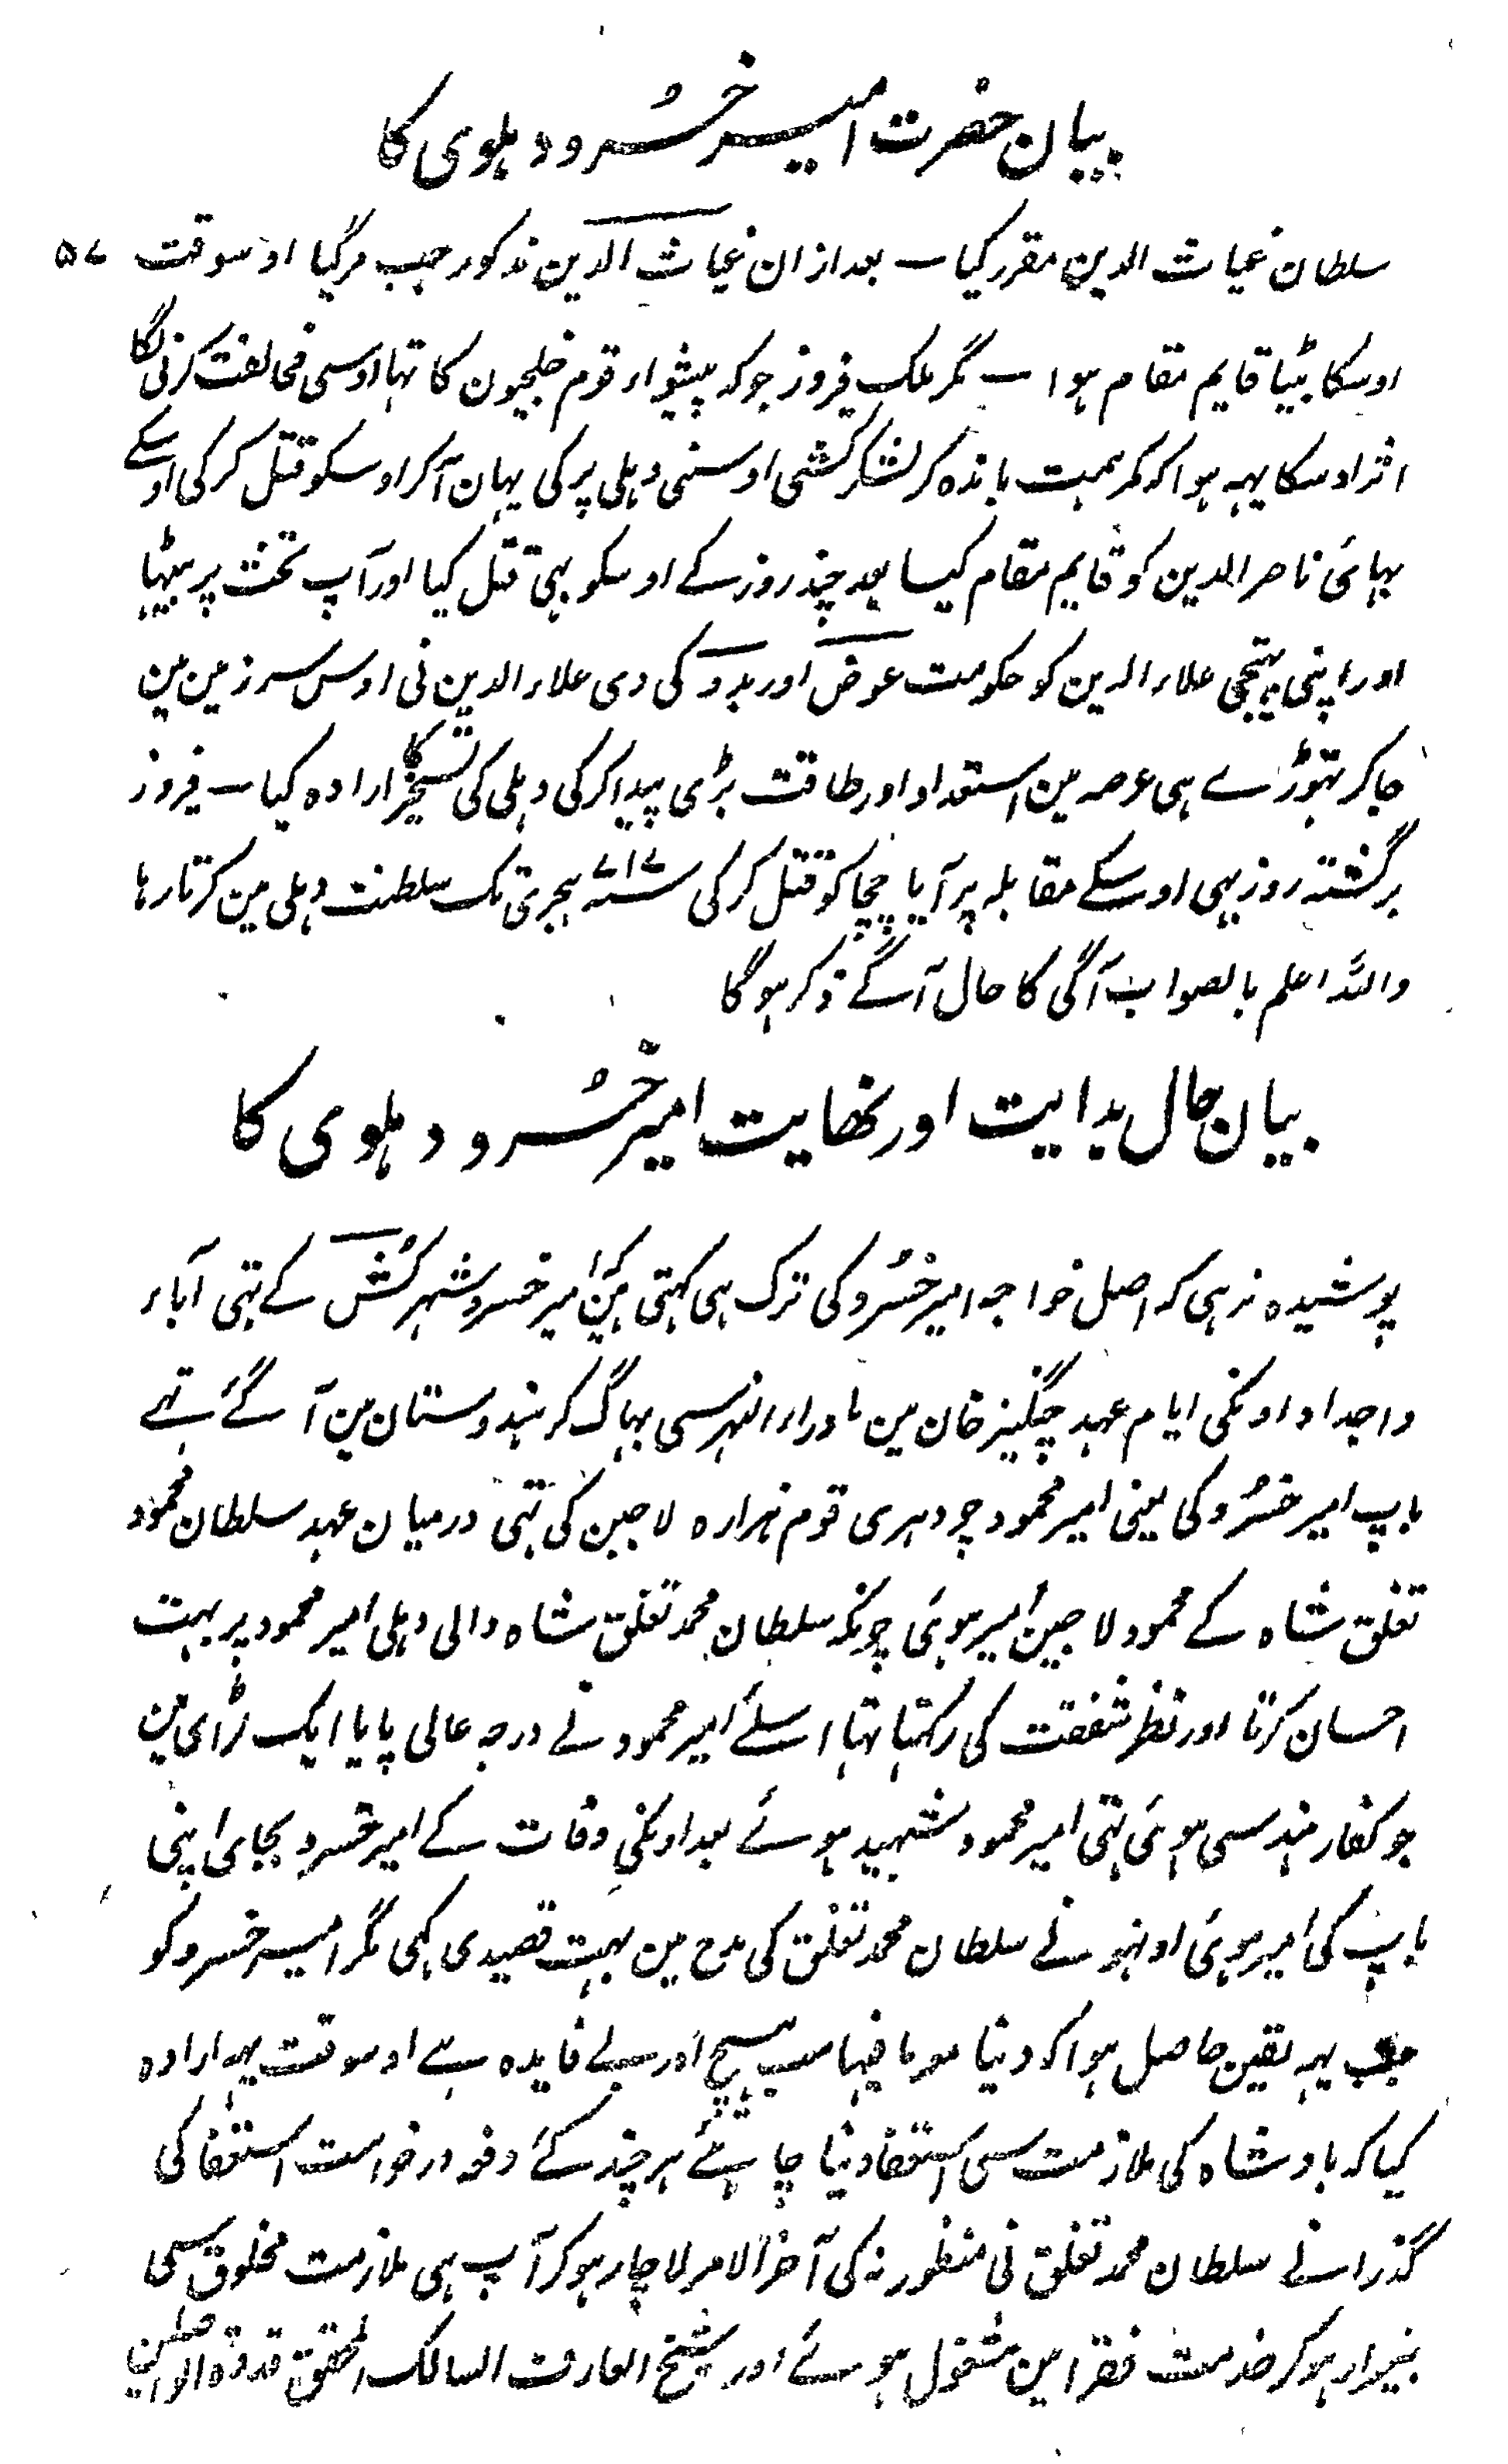 بیان حضرت امیر خُسرو دہلوی کا
سلطان غیاث الدین مقرر کیا ۔ بعد ازان غیاث الدین مذکور جب مرگیا اوسوقت ۵۷
اوسکا بیٹا قایم مقام ہوا ۔ مگر ملک فیروز جو کہ پیشواء قوم خلجیون کا تہا اوسی مخالفت کرنی لگا
اثر اوسکا یہہ ہوا کہ کمر ہمت باندہ کر لشکر کشی اوسنی دہلی پر کی یہان آکر اوسکو قتل کر کی اوسکے
بہائی ناصر الدین کو قایم مقام کیا بعد چند روز کے اوسکو بہی قتل کیا اور آپ تخت پر بیٹہا
اور اپنی بہتیجی علاء الدین کو حکومت عوض اور بدو کی دی علاء الدین نی اوس سرزمین مین
جاکر تہوڑے ہی عرصہ مین استعداد اور طاقت بڑی پیدا کرکی دہلی کی تسخیر کا ارادہ کیا ۔ فیروز
برگشتہ روز بہی اوسکے مقابلہ پر آیا چچا کو قتل کر کی سنہ ۷۱۷ ہجری تک سلطنت دہلی مین کرتا رہا
واللہ اعلم بالصواب آگی کا حال آگے ذکر ہوگا
بیان حال بدایت اور نہایت امیر خُسرو دہلوی کا
پوشیدہ نرہی کہ اصل خواجہ امیر خسُرو کی ترک ہی کہتی ہین کہ امیر خسرو شہر کُش کے تہی آباء
واجداد اونکی ایام عہد چنگیز خان مین ماوراء النہر سی بہاگ کر ہندوستان مین آ گئے تہے
باپ امیر خسُرو کی یعنی امیر محمود چودہری قوم ہزارہ لاچین کی تہی درمیان عہد سلطان محمود
تغلق شاہ کے محمود لاچین امیر ہوئی چونکہ سلطان محمد تغلق شاہ والی دہلی امیر محمود پر بہت
احسان کرتا اور نظر شفقت کی رکہتا تہا اسلئے امیر محمود نے درجہ عالی پایا ایک لڑائی مین
جو کفار ہند سی ہوئی تہی امیر محمود شہید ہوئے بعد اونکی وفات کے امیر خسرو بجای اپنی
باپ کی امیر ہوئی اونہو نے سلطان محمد تغلق کی مدح مین بہت قصیدی کہی مگر امیر خسرو کو
جب یہہ یقین حاصل ہوا کہ دنیا مع مافیہا سب ہیچ اور بے فایدہ ہے اوسوقت یہہ ارادہ
کیا کہ بادشاہ کی ملازمت سی استعفا دینا چاہئے ہر چند کئے دفعہ درخواست استعفا کی
گذرانے سلطان محمد تغلق نی منظور نہ کی آخر الامر لاچار ہوکر آپ ہی ملازمت مخلوق سی
بیزار ہوکر خدمت فقرا مین مشغول ہوئے اور شیخ العارف السالک المحقق قدوۃ الواصلین